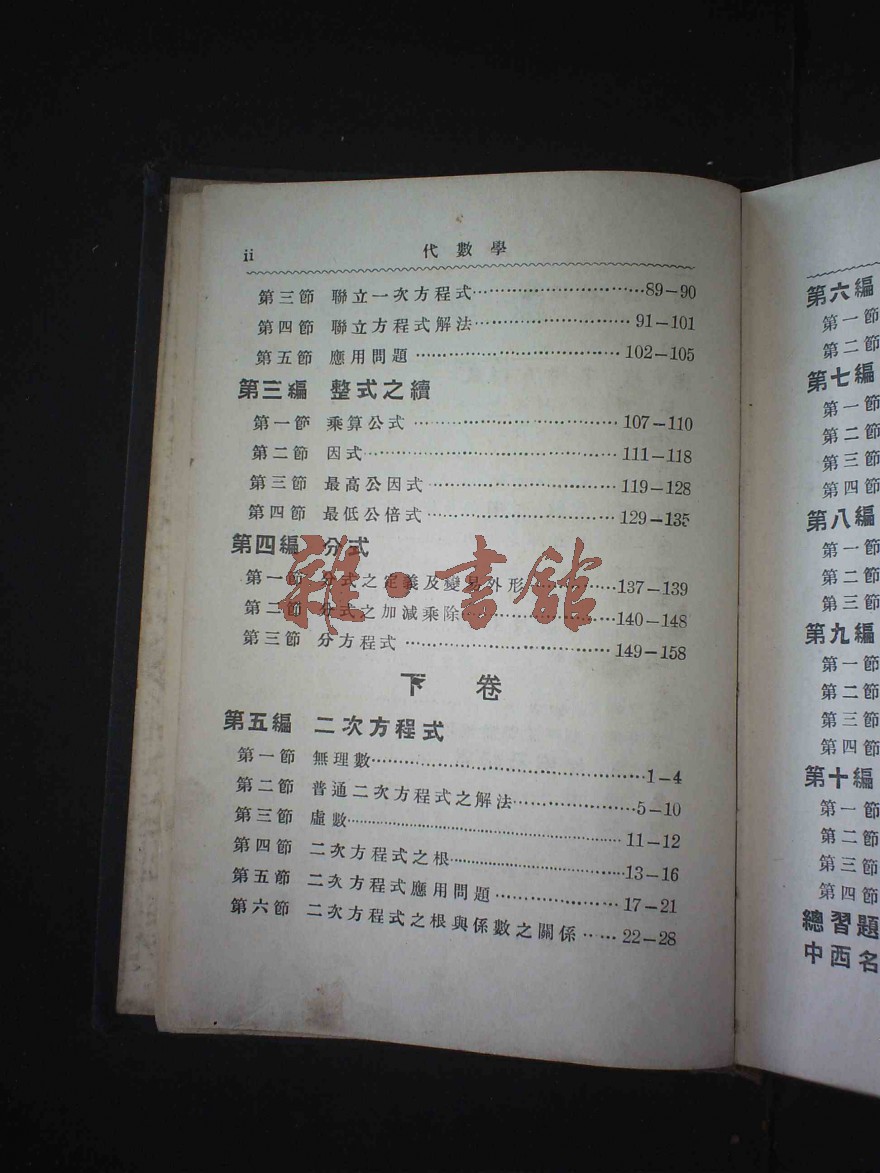 ii 代數學
第三節 聯立一次方程式…………………………89—90
第四節 聯立方程式解法……………………… 91—101
第五節 應用問題 ……………………………… 102—105
第三編 整式之續
第一節 乘算公式 ……………………………… 107—110
第二節 因式……………………………………… 111—118
第三節 最高公因式 …………………………… 119—128
第四節 最低公倍式 …………………………… 129—135
第四編 分式
第一節 分式之定義及變易外形……………137—139
第二節 分式之加減乘除……………………… 140—148
第三節 分方程式 ……………………………… 149—158
下卷
第五編 二次方程式
第一節 無理數……………………………………………1—4
第二節 普通二次方程式之解法…………………5—10
第三節 虛數……………………………………………11—12
第四節 二次方程式之根…………………………13—16
第五節 二次方程式應用問題…………………17—21
第六節 二次方程式之根與係數之關係……22—28
雜·書館
第六編
第一節
第二節
第七編
第一節
第二節
第三節
第四節
第八編
第一節
第二節
第三節
第九編
第一節
第二節
第三節
第四節
第十編
第一節
第二節
第三節
第四節
總習題
中西名